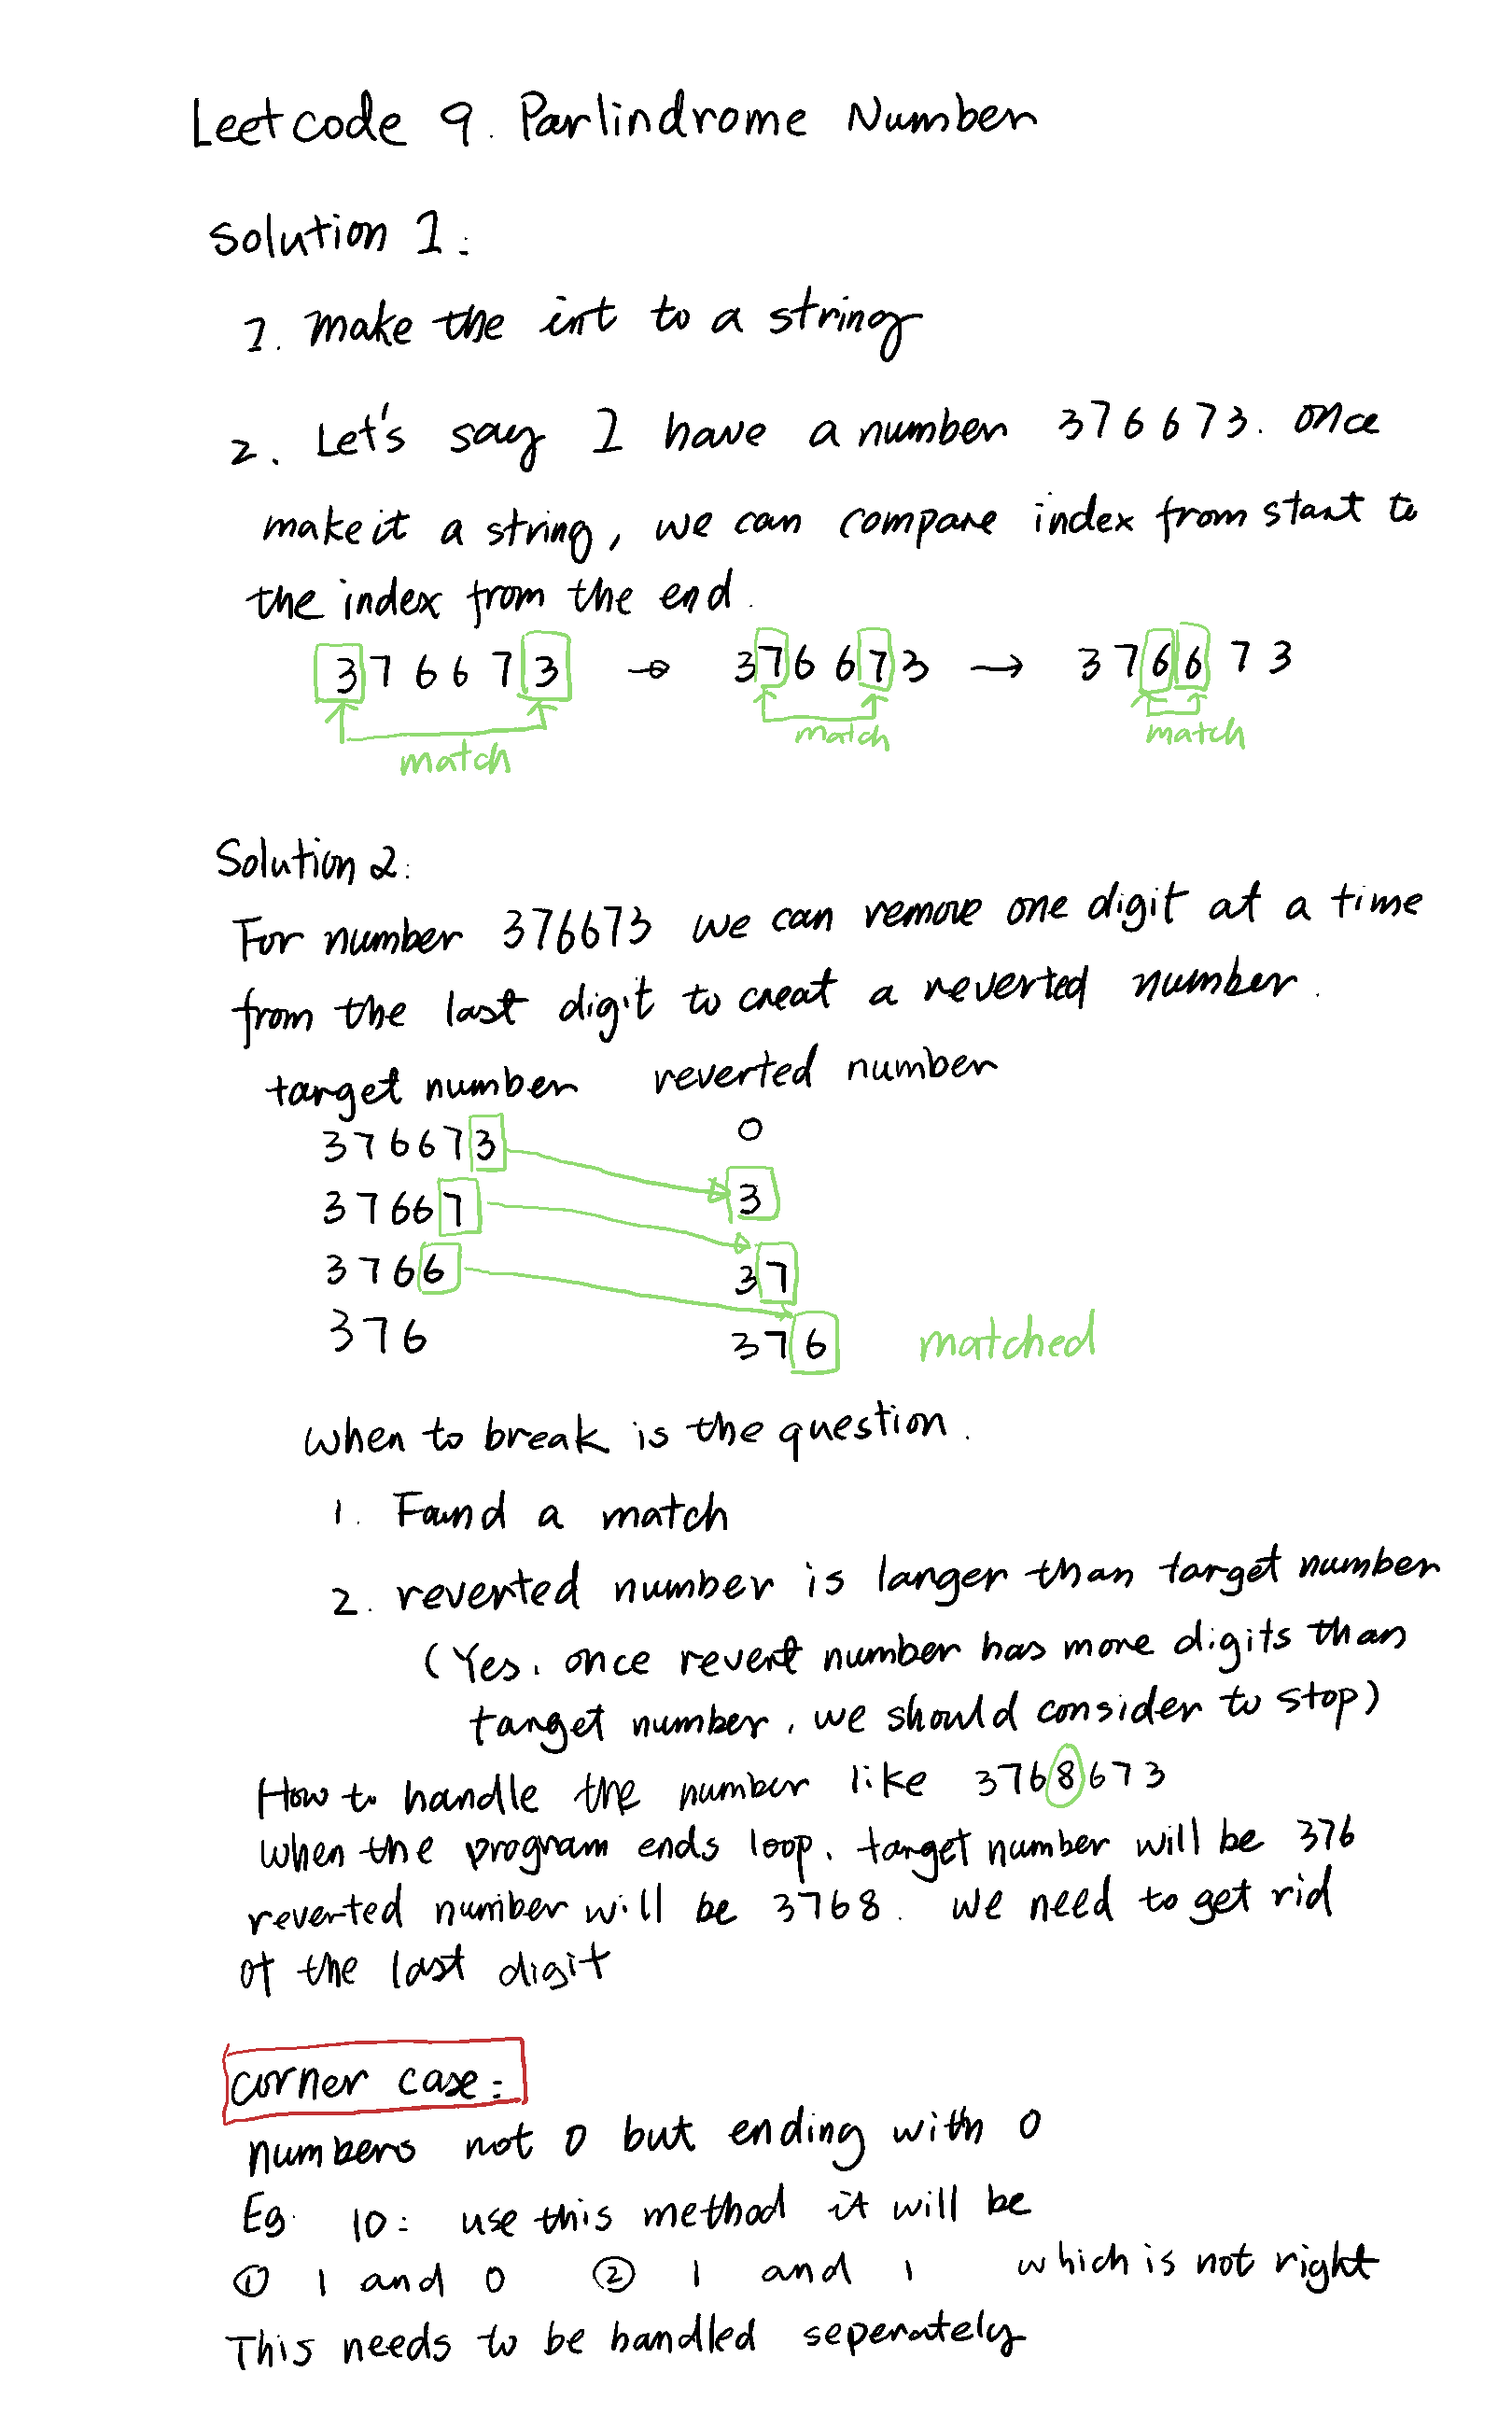 Leetcode 9. Parlindrome Number
Solution 1:
1. make the int to a string
2. Let's say I have a number 376673. once
make it a string, we can compare index from start to
the index from the end.
376673 → 376673 → 376673
match match match
Solution 2:
For number 376673 we can remove one digit at a time
from the last digit to creat a reverted number.
target number reverted number
376673 0
37667 3
3766 37
376 376 matched
when to break is the question.
1. Found a match
2. reverted number is larger than target number
(Yes, once revert number has more digits than
target number, we should consider to stop)
How to handle the number like 3768673
when the program ends loop, target number will be 376
reverted number will be 3768. We need to get rid
of the last digit
corner case:
numbers not 0 but ending with 0
Eg. 10: use this method it will be
① 1 and 0 ② 1 and 1 which is not right
This needs to be handled seperately